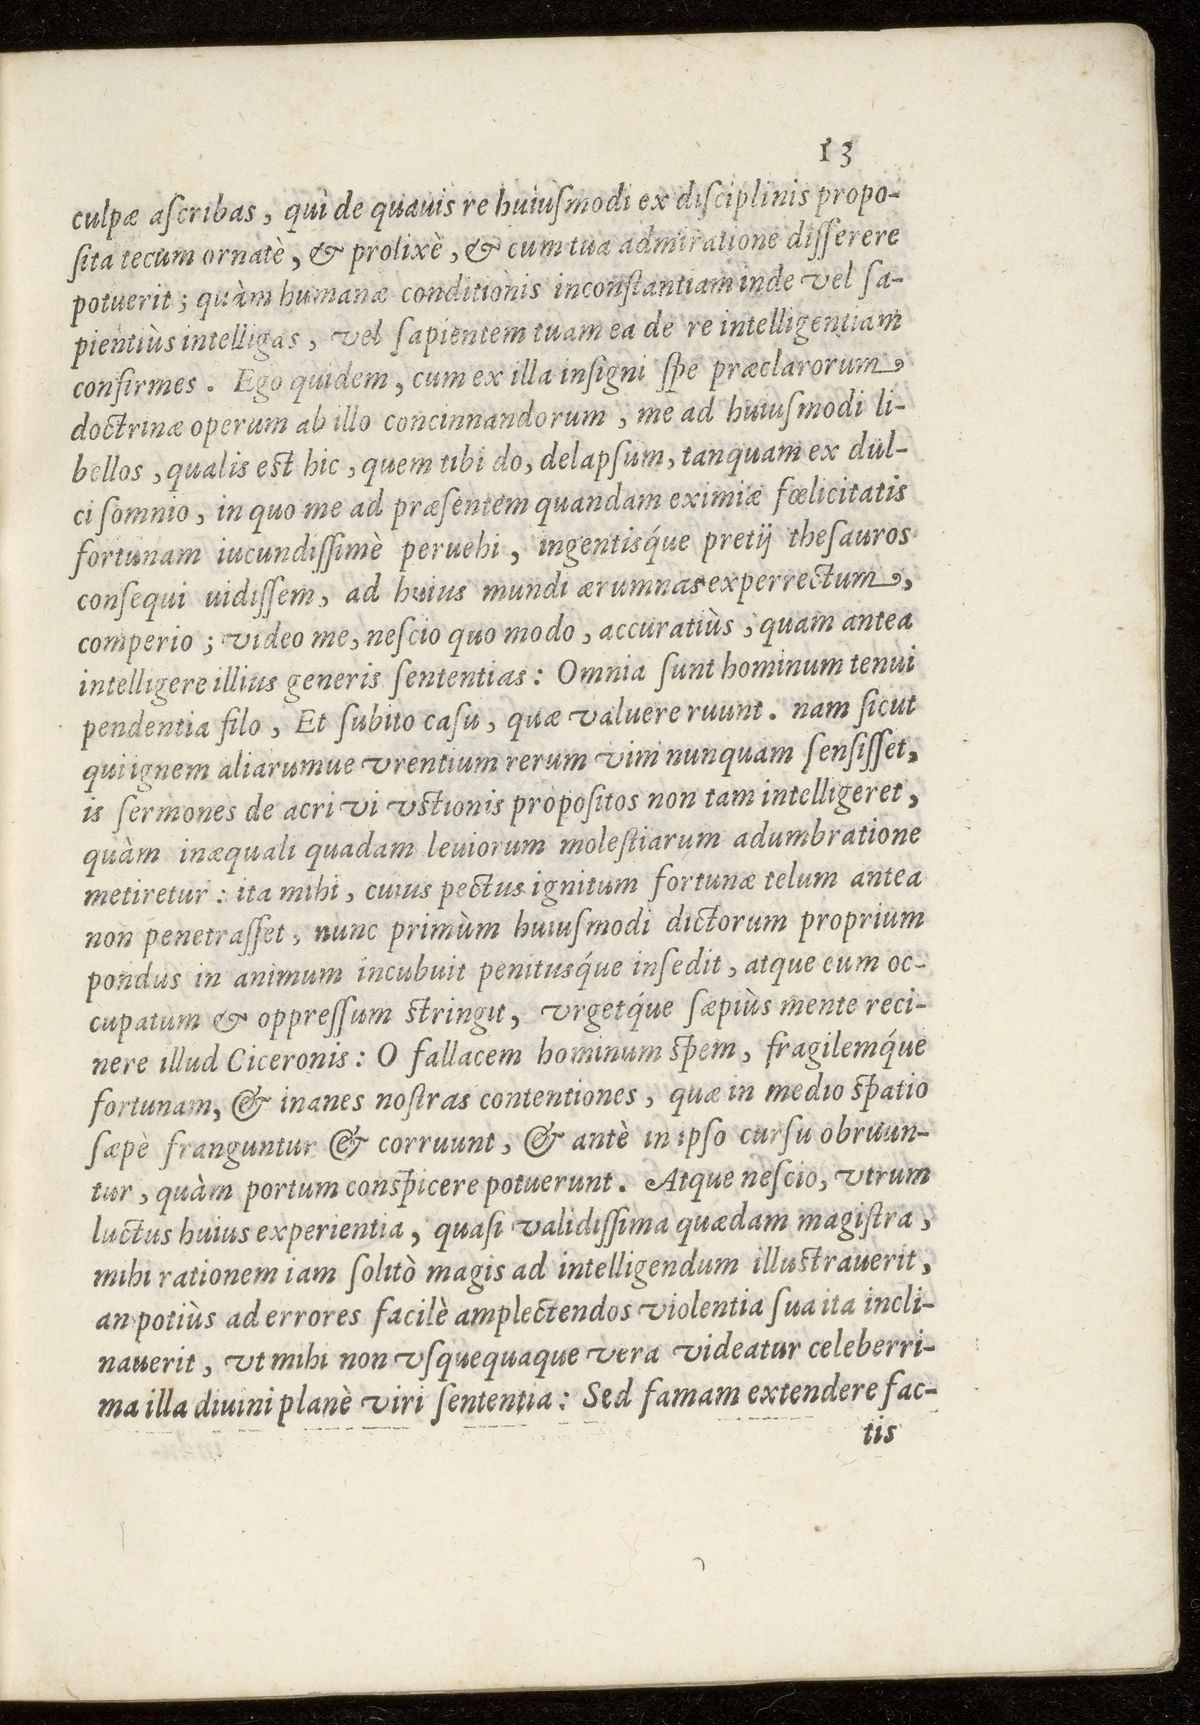 13
culpæ aſcribas, quì de quauis re huiuſmodi ex diſciplinis propo-
ſita tecum ornatè, & prolixè, & cum tua admiratione diſſerere
potuerit; quàm humanæ conditionis inconſtantiam inde vel ſa-
pientiùs intelligas, vel ſapientem tuam ea de re intelligentiam
confirmes. Ego quidem, cum ex illa inſigni ſpe præclarorum
doctrinæ operum ab illo concinnandorum, me ad huiuſmodi li-
bellos, qualis est hic, quem tibi do, delapſum, tanquam ex dul-
ci ſomnio, in quo me ad præſentem quandam eximiæ fœlicitatis
fortunam iucundiſſimè peruehi, ingentisq́ue pretij theſauros
conſequi uidiſſem, ad huius mundi ærumnas experrectum,
comperio; video me, neſcio quo modo, accuratiùs, quam antea
intelligere illius generis ſententias: Omnia ſunt hominum tenui
pendentia filo, Et ſubito caſu, quæ valuere ruunt. nam ſicut
qui ignem aliarumue vrentium rerum vim nunquam ſenſiſſet,
is ſermones de acri vi vstionis propoſitos non tam intelligeret,
quàm inæquali quadam leuiorum moleſtiarum adumbratione
metiretur: ita mihi, cuius pectus ignitum fortunæ telum antea
non penetraſſet, nunc primùm huiuſmodi dictorum proprium
pondus in animum incubuit penitusq́ue inſedit, atque eum oc-
cupatum & oppreſſum stringit, vrgetq́ue ſæpiùs mente reci-
nere illud Ciceronis: O fallacem hominum spem, fragilemq́ue
fortunam, & inanes noſtras contentiones, quæ in medio spatio
ſæpè franguntur & corruunt, & antè in ipſo curſu obruun-
tur, quàm portum conspicere potuerunt. Atque neſcio, vtrum
luctus huius experientia, quaſi validiſſima quædam magiſtra,
mihi rationem iam ſolitò magis ad intelligendum illustrauerit,
an potiùs ad errores facilè amplectendos violentia ſua ita incli-
nauerit, vt mihi non vſquequaque vera videatur celeberri-
ma illa diuini planè viri ſententia: Sed famam extendere fac-
tis